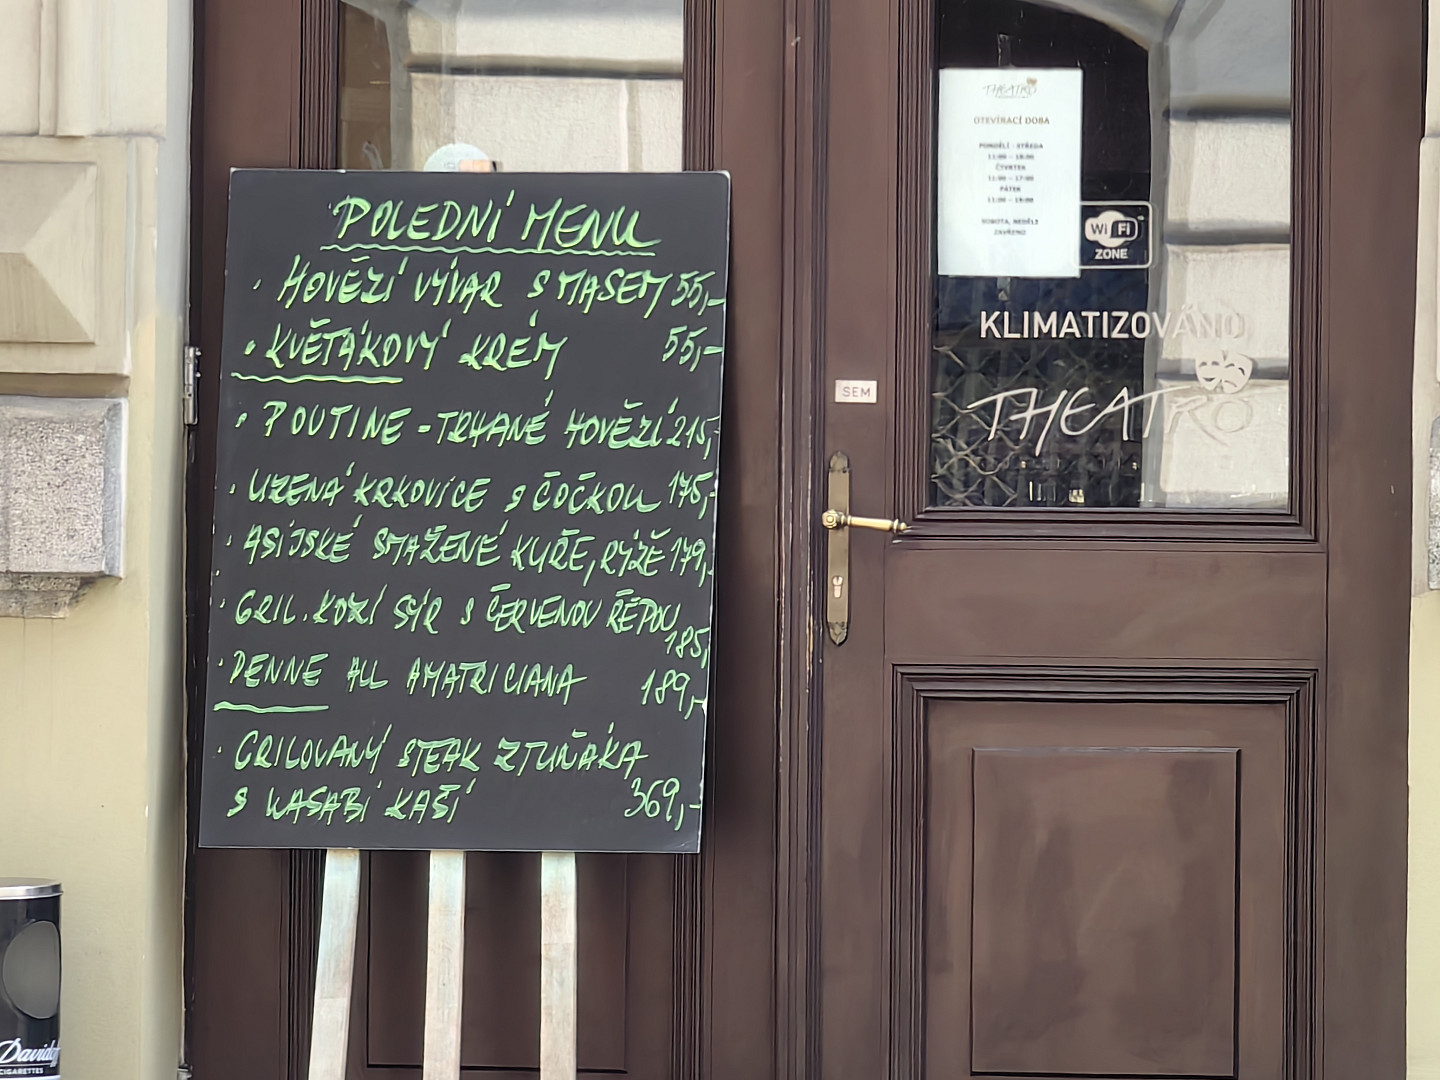 POLEDNÍ MENU
• HOVĚZÍ VÝVAR S MASEM 55,-
• KVĚTÁKOVÝ KRÉM 55,-
• POUTINE - TRHANÉ HOVĚZÍ 215,-
• UZENÁ KRKOVICE S ČOČKOU 175,-
• ASIJSKÉ SMAŽENÉ KUŘE, RÝŽE 179,-
• GRIL. KOZÍ SÝR S ČERVENOU ŘEPOU
185,-
• PENNE ALL AMATRICIANA 189,-
• GRILOVANÝ STEAK Z TUŇÁKA
S WASABI KAŠÍ 369,-
THEATRO
OTEVÍRACÍ DOBA
PONDĚLÍ - STŘEDA
11:00 - 18:00
ČTVRTEK
11:00 - 17:00
PÁTEK
11:00 - 19:00
SOBOTA, NEDĚLE
ZAVŘENO
Wi Fi
ZONE
KLIMATIZOVÁNO
THEATRO
SEM
Davidoff
CIGARETTES